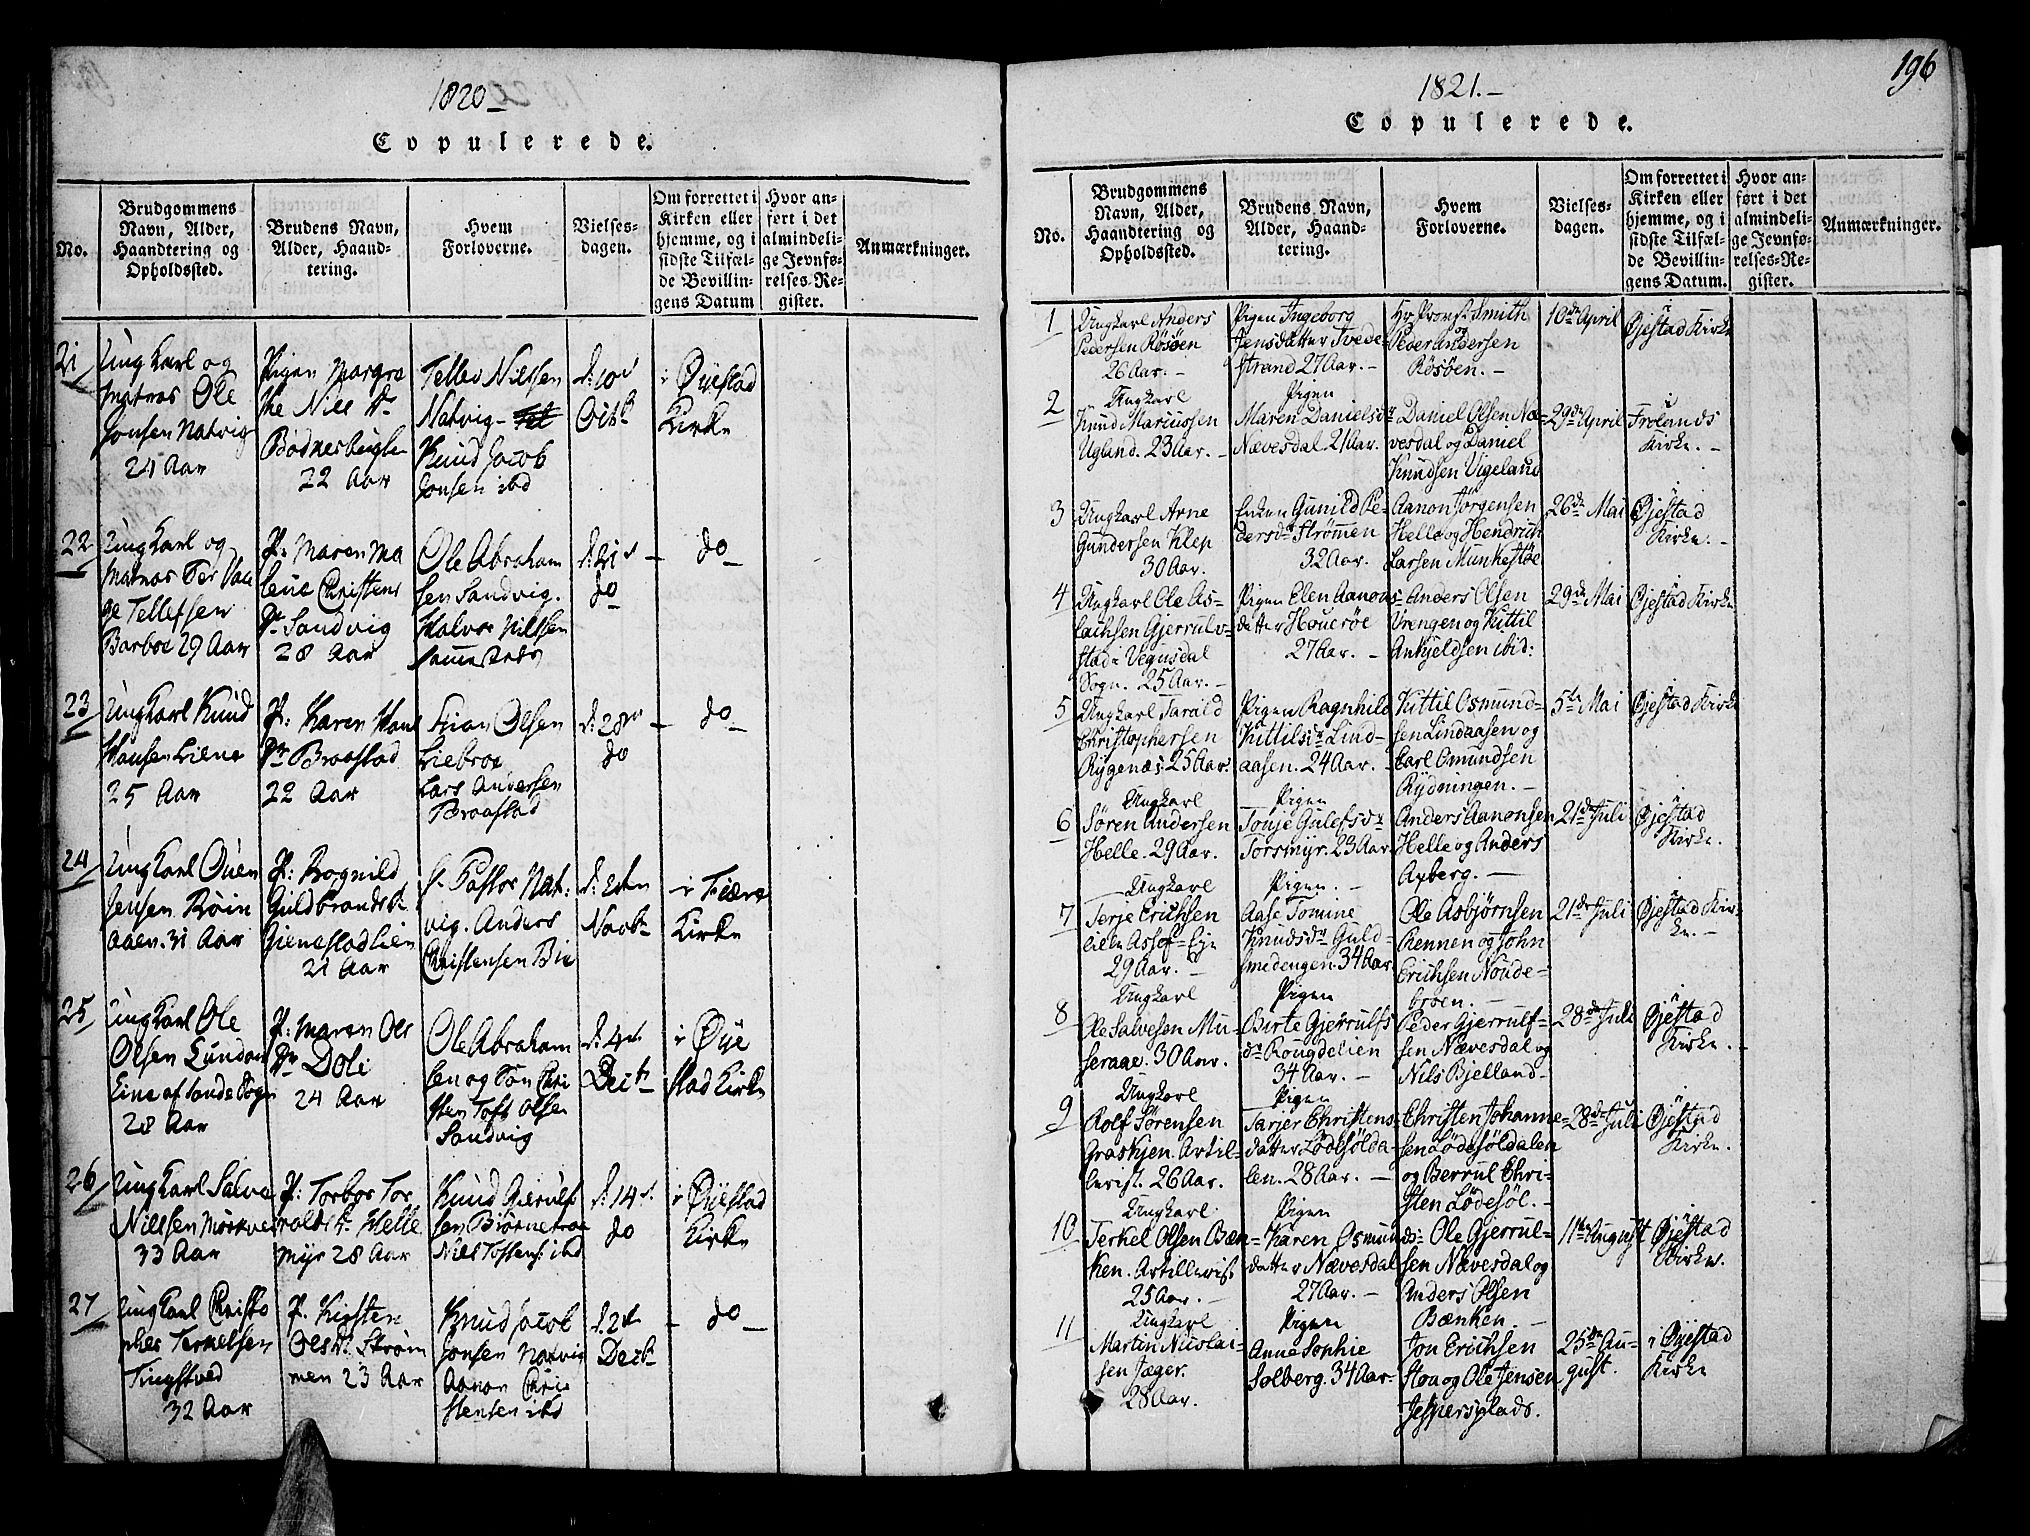 1820
Copulerede.
No.
Brudgommens
Navn, Alder,
Haandtering og
Opholdssted.
Brudens Navn,
Alder, Haand-
tering.
Hvem
Forloverne.
Vielses-
dagen.
Om forrettet i
Kirken eller
hjemme, og i
sidste Tilfæl-
de Bevillin-
gens Datum
Hvor an-
ført i det
almindeli-
ge Jevnfø-
relses-Re-
gister.
Anmærkninger.
21
Ungkarl og
Matros Ole
Jonsen Natvig
24 Aar
Pigen Margre
the Niels Dr
22 Aar
Tellev Nilsen
Natvig
Knud Jacob
Jonsen ibd
d: 10d
Octb
i Øiestad
Kirke
22
Ungkarl og
Matros
Tellefsen
Barboe 29 Aar
P: Maren Ma
lene Christens
Dr Sandvig
28 Aar
Ole Abraham
sen Sandvig.
Halvor Nilsen
d: 21d
do
do
23
Ungkarl Knud
Hansen Liene
25 Aar
P: Karen Hans
Dr Braastad
22 Aar
Olsen
Liebroe
Lars Andersen
Braastad
d: 28de
do
do
24
Ungkarl Ouen
Jensen Röin
aaen. 31 Aar
P: Rognild
Guldbrandsd
21 Aar
Pastor Nat:
vig. Anders
Christensen Bie
Novbr
i Fiære
Kirke
25
Ungkarl Ole
Olsen Lundan
28 Aar
P: Maren Ols
Dr Doli
24 Aar
Ole Abraham
sen og Søn Chri
sten Toft Olsen
Sandvig
d: 4de
Decbr
i Øye
stad Kirke
26
Ungkarl Salve
Nielsen
33 Aar
P: Torbor Tor
Helle
myr 28 Aar
Knud Gierulf
sen
ibd
d: 14d.
do
i Øiestad
Kirke
27
Ungkarl Christo
pher Terkelsen
Tingstved
32 Aar
P. Kirsten
Olsdr. Ström
men 23 Aar
Knud Jacob
Jonsen Natvig
Aanon Chri
stensen ibd
Decbr
do
196
1821.-
Copulerede.
No.
Brudgommens
Navn, Alder,
Haandtering og
Opholdssted.
Brudens Navn,
Alder, Haand-
tering.
Hvem
Forloverne.
Vielses-
dagen.
Om forrettet i
Kirken eller
hjemme, og i
sidste Tilfæl-
de Bevillin-
gens Datum.
Hvor an-
ført i det
almindeli-
ge Jevnfø-
relses-Re-
gister.
Anmærkninger.
1
Ungkarl Anders
Pedersen Rösöen
26 Aar. -
Pigen Ingeborg
Jensdatter Tvede-
strand 27 Aar. -
Hr. Provst Smith
og
Peder Andersen
Rösöen. -
10de April
Øjestad Kirke
2
Ungkarl
Knud Mariussen
Ugland. 23 Aar. -
Pigen
Maren Danielsdr
Nævesdal. 21 Aar.
Daniel Olsen Næ-
vesdal og Daniel
Knudsen Vigeland
29de April
i
Frolands
Kirke. -
3
Ungkarl Arne
Gundersen Klep
30 Aar.
Enken Gunild Pe-
dersdr Strømmen
32 Aar.
Aanon Jørgensen
Helle og Hendrich
Larsen Munkestøe
26de Mai
Øjestad
Kirke. -
4
Ungkarl Ole As-
lachsen Gjerrulv-
stad i Vegusdal
Sogn. 25 Aar. -
Pigen Elen Aanons-
datter Houeröe
27 Aar. -
Anders Olsen
Vrengen og Kittil
Ankjeldsen ibid:
29de Mai
Øjestad Kirke
5
Ungkarl Tarald
Christophersen
Rygenæs. 25 Aar.
Pigen Ragnhild
Kittilsdr Lind-
aasen. 24 Aar. -
Kittil Osmund-
sen Lindaasen og
Carl Osmundsen
Rydningen. -
5te Mai
Øjestad Kirke
6
Ungkarl
Søren Andersen
Helle. 29 Aar.
Pigen
Tonje Gulefsdr
Torsmyr. 23 Aar
Anders Aanonsen
Helle og Anders
Axberg. -
21de Juli
Øjestad
Kirke.
7
Ungkarl
Terje Erichsen
29 Aar. -
Pigen. -
Aase Tomine
Knudsdr Guld-
smedengen. 34 Aar.
Ole Asbjørnsen
Rennen og John
Erichsen Noude-
broen. -
21de Juli
Øjestad Kir-
ke. -
8
Ungkarl
Ole Salvesen Mu-
seraae. 30 Aar.
Pigen
Birte Gjerrulfs
dr Rougdelien
34 Aar. -
Peder Gjerrulf-
sen Nævesdal og
Nils Bjelland -
28de Juli
Øjestad
Kirke. -
9
Ungkarl
Rolf Sørensen
Graskjen. Artil-
lerist. 26 Aar.
Pigen
Tarjer Christens-
datter Lödesölda-
len. 28 Aar. -
Christen Johanne-
sen Lödesöldalen
og Berrul Chri-
sten Lödesöl. -
28de Juli
Øjestad
Kirke.
10
Ungkarl
Terkel Olsen Bæn-
ken. Artillerist
25 Aar. -
Pigen
Karen Osmunds-
datter Nævesdal
27 Aar. -
Ole Gjerrul-
sen Nævesdal og
Anders Olsen
Bænken. -
11te August
Øjestad
Kirke.
11
Ungkarl
Martin Nicolai-
sen Jæger.
28 Aar.
Pigen
Anne Sophie
Solberg. 34 Aar.
Jon Erichsen
Stoa og Ole Jensen
Jespersplads.
25de Au-
gust.
i Øjestad
Kirke